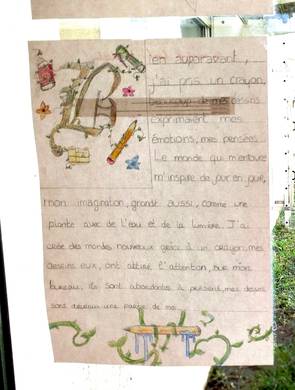 B
ien auparavant,
j'ai pris un crayon,
beaucoup de mes dessins
exprimaient mes
émotions, mes pensées.
Le monde qui m'entoure
m'inspire de jour en jour,
mon imagination, grandit aussi, comme une
plante avec de l'eau et de la lumière. J'ai
crée des mondes nouveaux grâce à un crayon, mes
dessins eux, ont attiré l'attention, sur mon
bureau, ils sont abondants à présent, mes dessins
sont devenus une partie de moi.